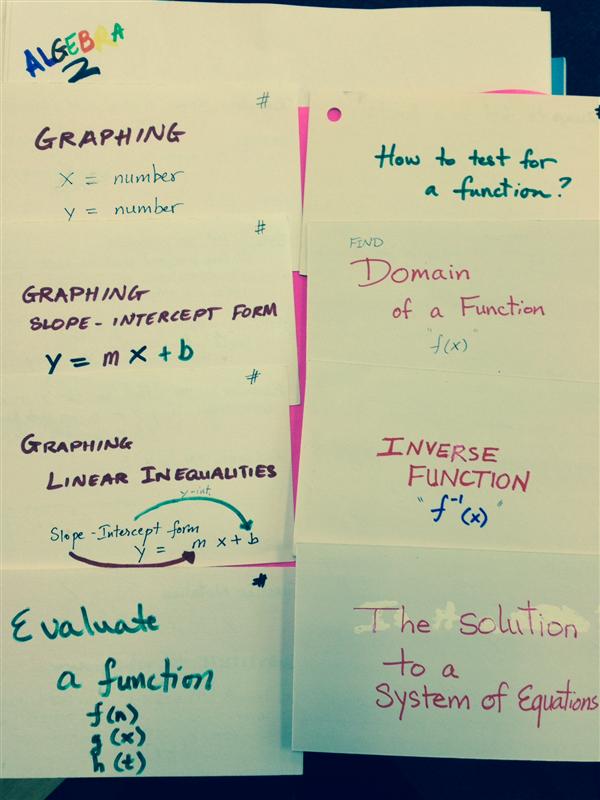 ALGEBRA
2
#
GRAPHING
x = number
y = number
#
GRAPHING
SLOPE - INTERCEPT FORM
y = m x + b
#
GRAPHING
LINEAR INEQUALITIES
y-int.
Slope - Intercept form
y = m x + b
#
Evaluate
a function
f(n)
g(x)
h(t)
#
How to test for
a function?
FIND
Domain
of a Function
"f(x)"
INVERSE
FUNCTION
"f⁻¹(x)"
The solution
to a
System of Equations